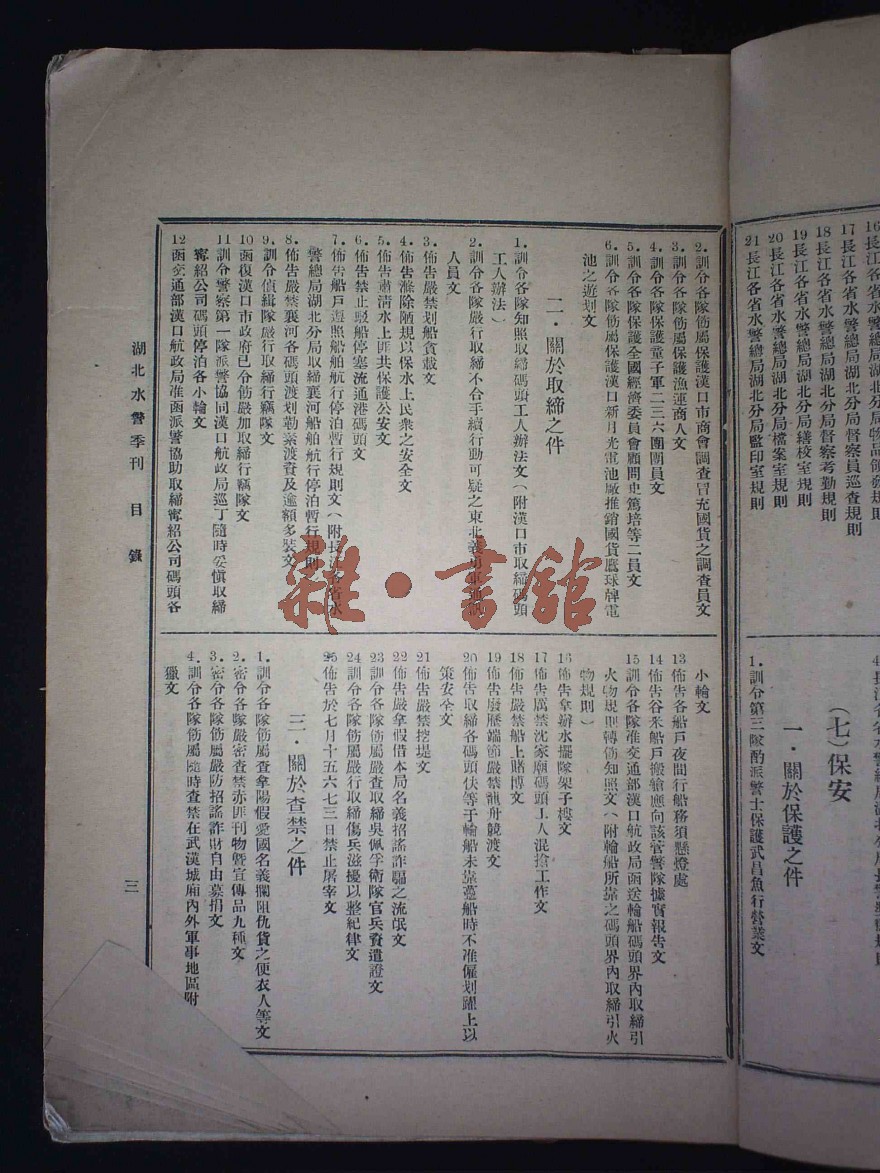 17 長江各省水警總局湖北分局督察員巡查規則
18 長江各省水警總局湖北分局督察考勤規則
19 長江各省水警總局湖北分局繕校室規則
20 長江各省水警總局湖北分局檔案室規則
21 長江各省水警總局湖北分局監印室規則
(七)保安
一・關於保護之件
1. 訓令第三隊酌派警士保護武昌魚行營業文
2. 訓令各隊飭屬保護漢口市商會調查冒充國貨之調查員文
3. 訓令各隊飭屬保護漁運商人文
4. 訓令各隊保護童子軍二三六團團員文
5. 訓令各隊保護全國經濟委員會顧問史篤培等二員文
6. 訓令各隊飭屬保護漢口新月光電池廠推銷國貨鷹球牌電
池之遊划文
二・關於取締之件
1. 訓令各隊知照取締碼頭工人辦法文(附漢口市取締碼頭
工人辦法)
2. 訓令各隊嚴行取締不合手續行動可疑之東北義勇軍
人員文
3. 佈告嚴禁划船貪載文
4. 佈告滌除陋規以保水上民衆之安全文
5. 佈告肅清水上匪共保護公安文
6. 佈告禁止駁船停塞流通港碼頭文
7. 佈告船戶遵照船舶航行停泊暫行規則文(附長江各省水
警總局湖北分局取締襄河船舶航行停泊暫行規則)
8. 佈告嚴禁襄河各碼頭渡划勒索渡資及逾額多裝文
9. 訓令偵緝隊嚴行取締行竊隊文
10 函復漢口市政府已令飭嚴加取締行竊隊文
11 訓令警察第一隊派警協同漢口航政局巡丁隨時妥愼取締
甯紹公司碼頭停泊各小輪文
12 函交通部漢口航政局准函派警協助取締甯紹公司碼頭各
小輪文
13 佈告各船戶夜間行船務須懸燈處
14 佈告谷米船戶搬艙應向該管警隊據實報告文
15 訓令各隊准交通部漢口航政局函送輪船碼頭界內取締引
火物規則轉飭知照文(附輪船所靠之碼頭界內取締引火
物規則)
16 佈告拿辦水擺隊架子樓文
17 佈告厲禁沈家廟碼頭工人混搶工作文
18 佈告嚴禁船上賭博文
19 佈告廢歷端節嚴禁龍舟競渡文
20 佈告取締各碼頭伕等于輪船未靠躉船時不准僱划躍上以
策安全文
21 佈告嚴禁挖堤文
22 佈告嚴拿假借本局名義招謠詐騙之流氓文
23 訓令各隊飭屬嚴查取締吳佩孚衛隊官兵資遣證文
24 訓令各隊飭屬嚴行取締傷兵滋擾以整紀律文
25 佈告於七月十五六七三日禁止屠宰文
三・關於查禁之件
1. 訓令各隊飭屬查拿陽假愛國名義攔阻仇貨之便衣人等文
2. 密令各隊嚴密查禁赤匪刊物暨宣傳品九種文
3. 密令各隊飭屬嚴防招謠詐財自由募捐文
4. 訓令各隊飭屬隨時查禁在武漢城廂內外軍事地區附
獵文
湖北水警季刊 目錄
三
雜・書館